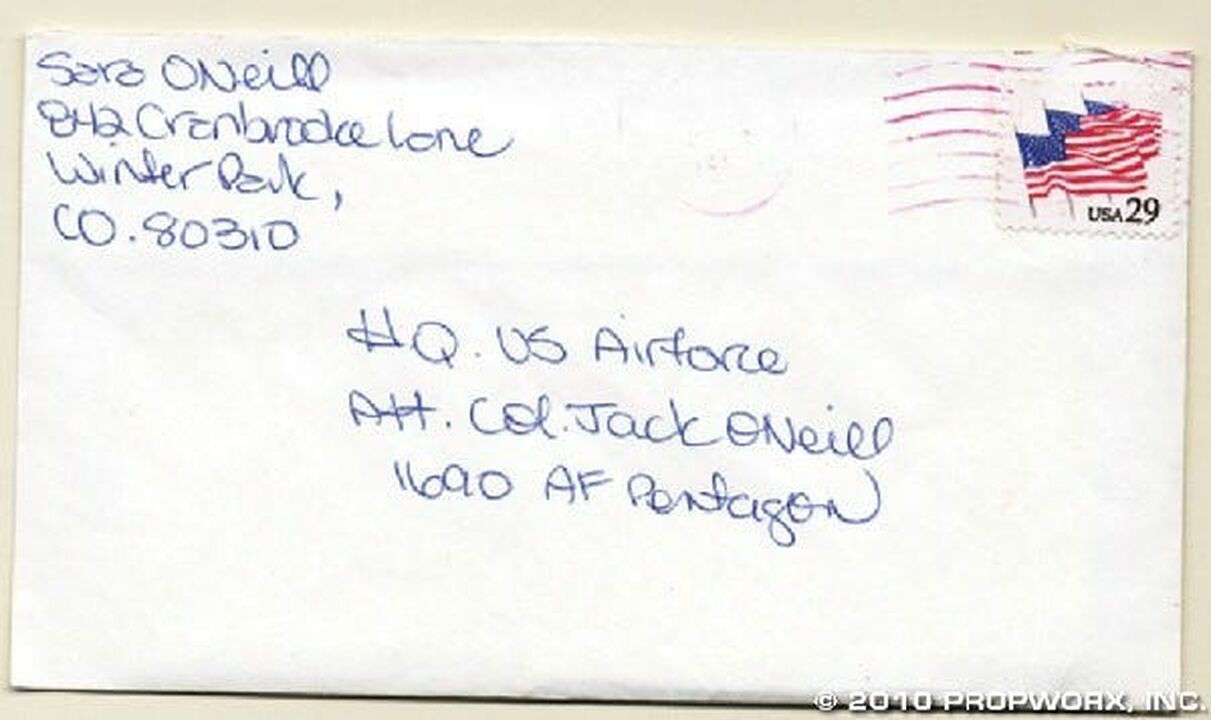 Sara ONeill
842 Cranbrooke Lane
Winter Park,
CO. 80310
USA 29
HQ. US Airforce
Att. Col. Jack ONeill
11690 AF Pentagon
© 2010 PROPWORX, INC.